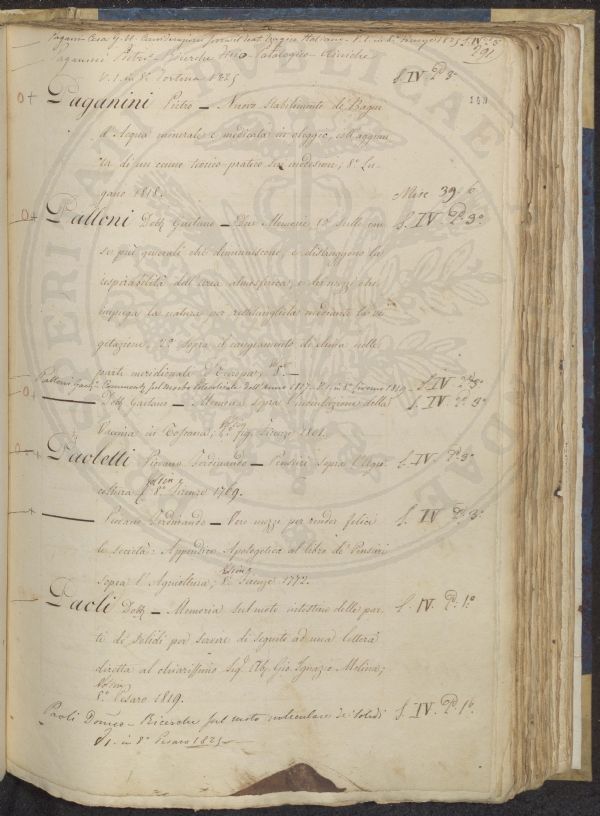 Pagani Cesa G. U. Considerazioni sopra il teat. tragico Italiano. V. 1. in 8º Firenze 1825 S. IV. Pº 5º
291
Paganini Pietro Ricerche Fisico-Patologico-Cliniche
V. 1. in 8º Tortona 1825 S. IV. Pº 3º
149
Paganini Pietro — Nuovo stabilimento di Bagni
d'Acqua minerale e medicata in Oleggio, coll'aggiun-
ta di un cenno teorico-pratico sui medesimi; 8º Lu-
gano 1818. Misc 39. 6
Palloni Dott. Gaetano — Due Memorie, 1ª sulle cau-
se più generali che diminuiscono, e distruggono la
respirabilità dell'aria atmosferica, e dei mezzi che
impiega la natura per ristabilirla mediante la ve-
getazione, 2ª sopra il cangiamento di clima nella
parte meridionale d'Europa; 8º — S. IV. Pº 3º
Palloni Gaetº. Commentº sul Morbo Petecchiale dell'Anno 1817. V. 1. in 8º Livorno 1819 S. IV. Pº 3º
— Dott. Gaetano — Memoria sopra l'inoculazione della S. IV. Pº 3º
Vaccina in Toscana; fig. Firenze 1801.
Paoletti Piovano Ferdinando — Pensieri sopra l'Agri- S. IV. Pº 3º
coltura; 8º Firenze 1769.
— Piovano Ferdinando — Vero mezzi per render felici S. IV Pº 3º
le società: Appendice Apologetica al libro de' Pensieri
sopra l'Agricoltura; 8º Firenze 1772.
Paoli Dottº — Memoria sul moto intestino delle par- S. IV. Pº 1º
ti di solidi per servire di seguito ad una lettera
diretta al chiarissimo Sigr. Ab. Gio. Ignazio Molina;
8º Pesaro 1819.
Paoli Domco — Ricerche sul moto molecolare de' Solidi S. IV. Pº 1º.
V 1. in 8º Pesaro 1825